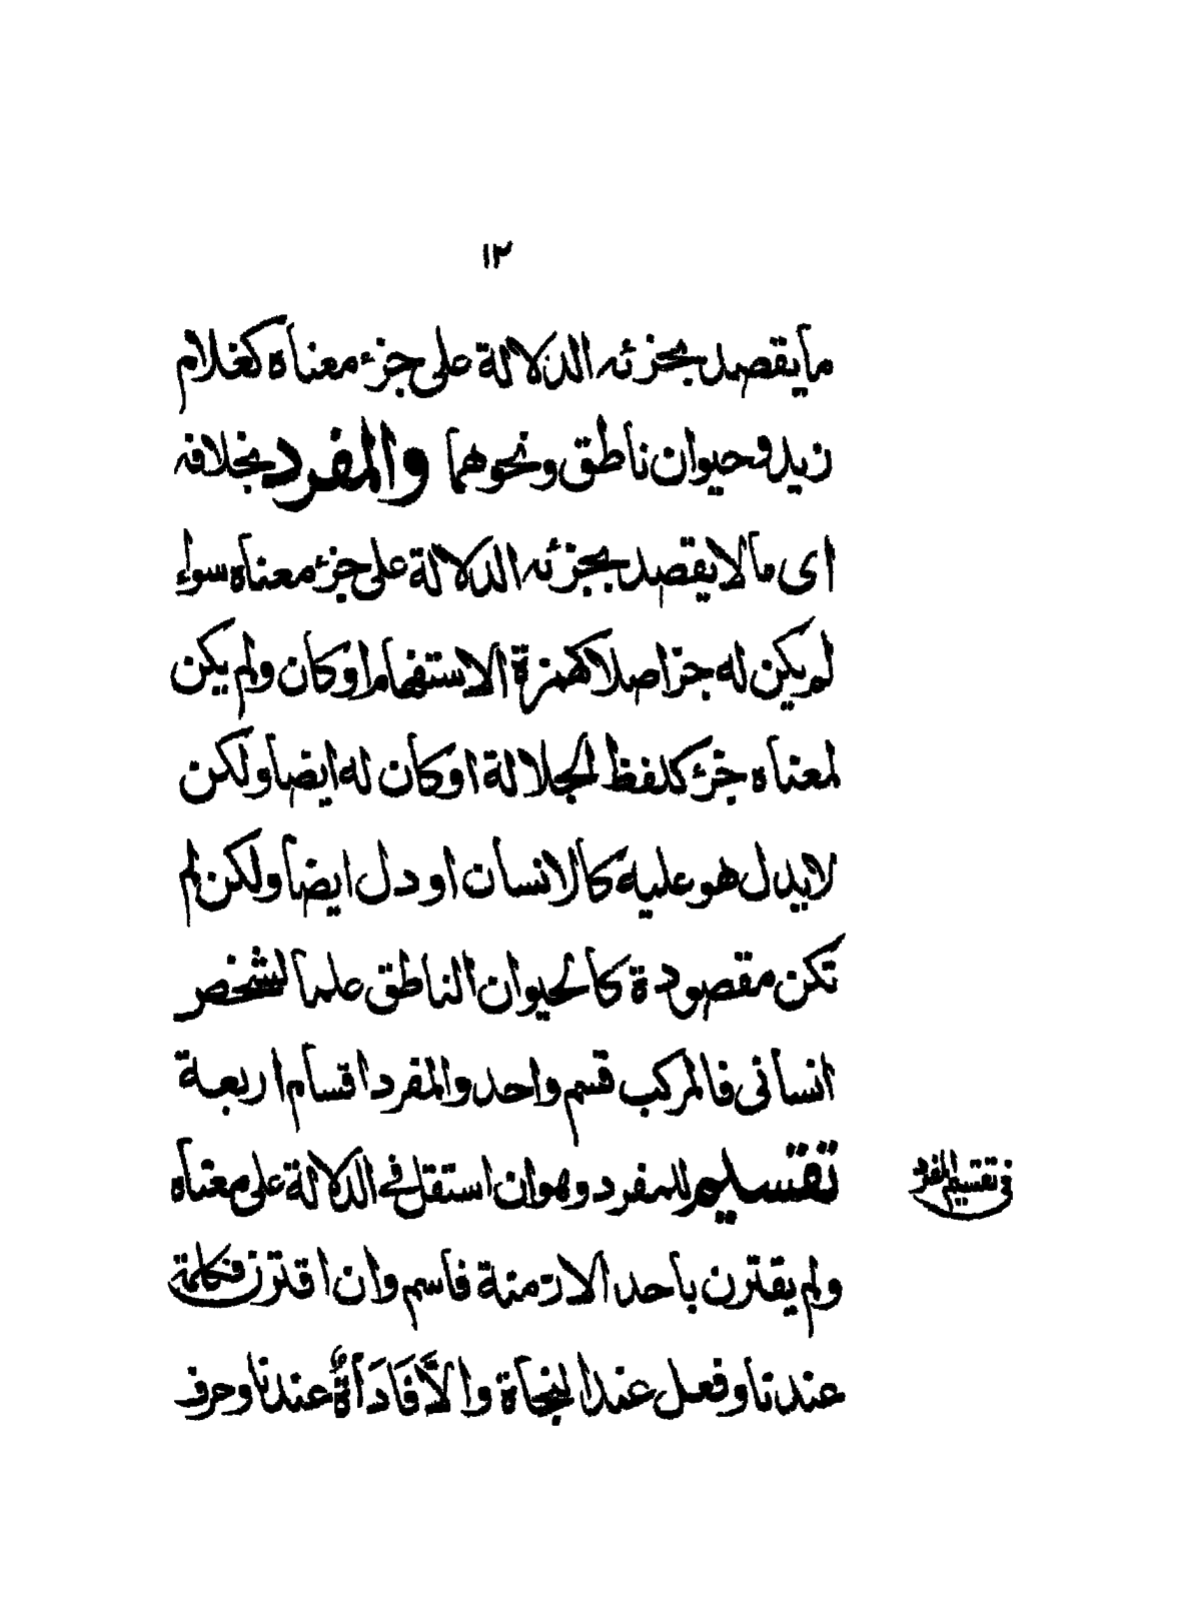 ١٢
ما يقصد بجزئه الدلالة على جزء معناه كغلام
زيد وحيوان ناطق ونحوهما والمفرد بخلافه
اى ما لا يقصد بجزئه الدلالة على جزء معناه سواء
لم يكن له جزء اصلا كهمزة الاستفهام او كان ولم يكن
لمعناه جزء كلفظ الجلالة او كان له ايضا ولكن
لا يدل هو عليه كالانسان او دل ايضا ولكن لم
تكن مقصودة كالحيوان الناطق علما لشخص
انسانى فالمركب قسم واحد والمفرد اقسام اربعة
تقسيم للمفرد وهو ان استقل في الدلالة على معناه
في تقسيم المفرد
ولم يقترن باحد الازمنة فاسم وان اقترن فكلمة
عندنا وفعل عند النحاة وَالاَّ فَاَدَاةٌ عندنا وحرف